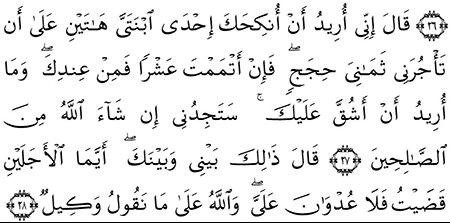 ﴿٢٦﴾ قَالَ إِنِّىٓ أُرِيدُ أَنْ أُنكِحَكَ إِحْدَى ٱبْنَتَىَّ هَـٰتَيْنِ عَلَىٰٓ أَن
تَأْجُرَنِى ثَمَـٰنِىَ حِجَجٍۢ ۖ فَإِنْ أَتْمَمْتَ عَشْرًۭا فَمِنْ عِندِكَ ۖ وَمَآ
أُرِيدُ أَنْ أَشُقَّ عَلَيْكَ ۚ سَتَجِدُنِىٓ إِن شَآءَ ٱللَّهُ مِنَ
ٱلصَّـٰلِحِينَ ﴿٢٧﴾ قَالَ ذَٰلِكَ بَيْنِى وَبَيْنَكَ ۖ أَيَّمَا ٱلْأَجَلَيْنِ
قَضَيْتُ فَلَا عُدْوَٰنَ عَلَىَّ ۖ وَٱللَّهُ عَلَىٰ مَا نَقُولُ وَكِيلٌۭ ﴿٢٨﴾